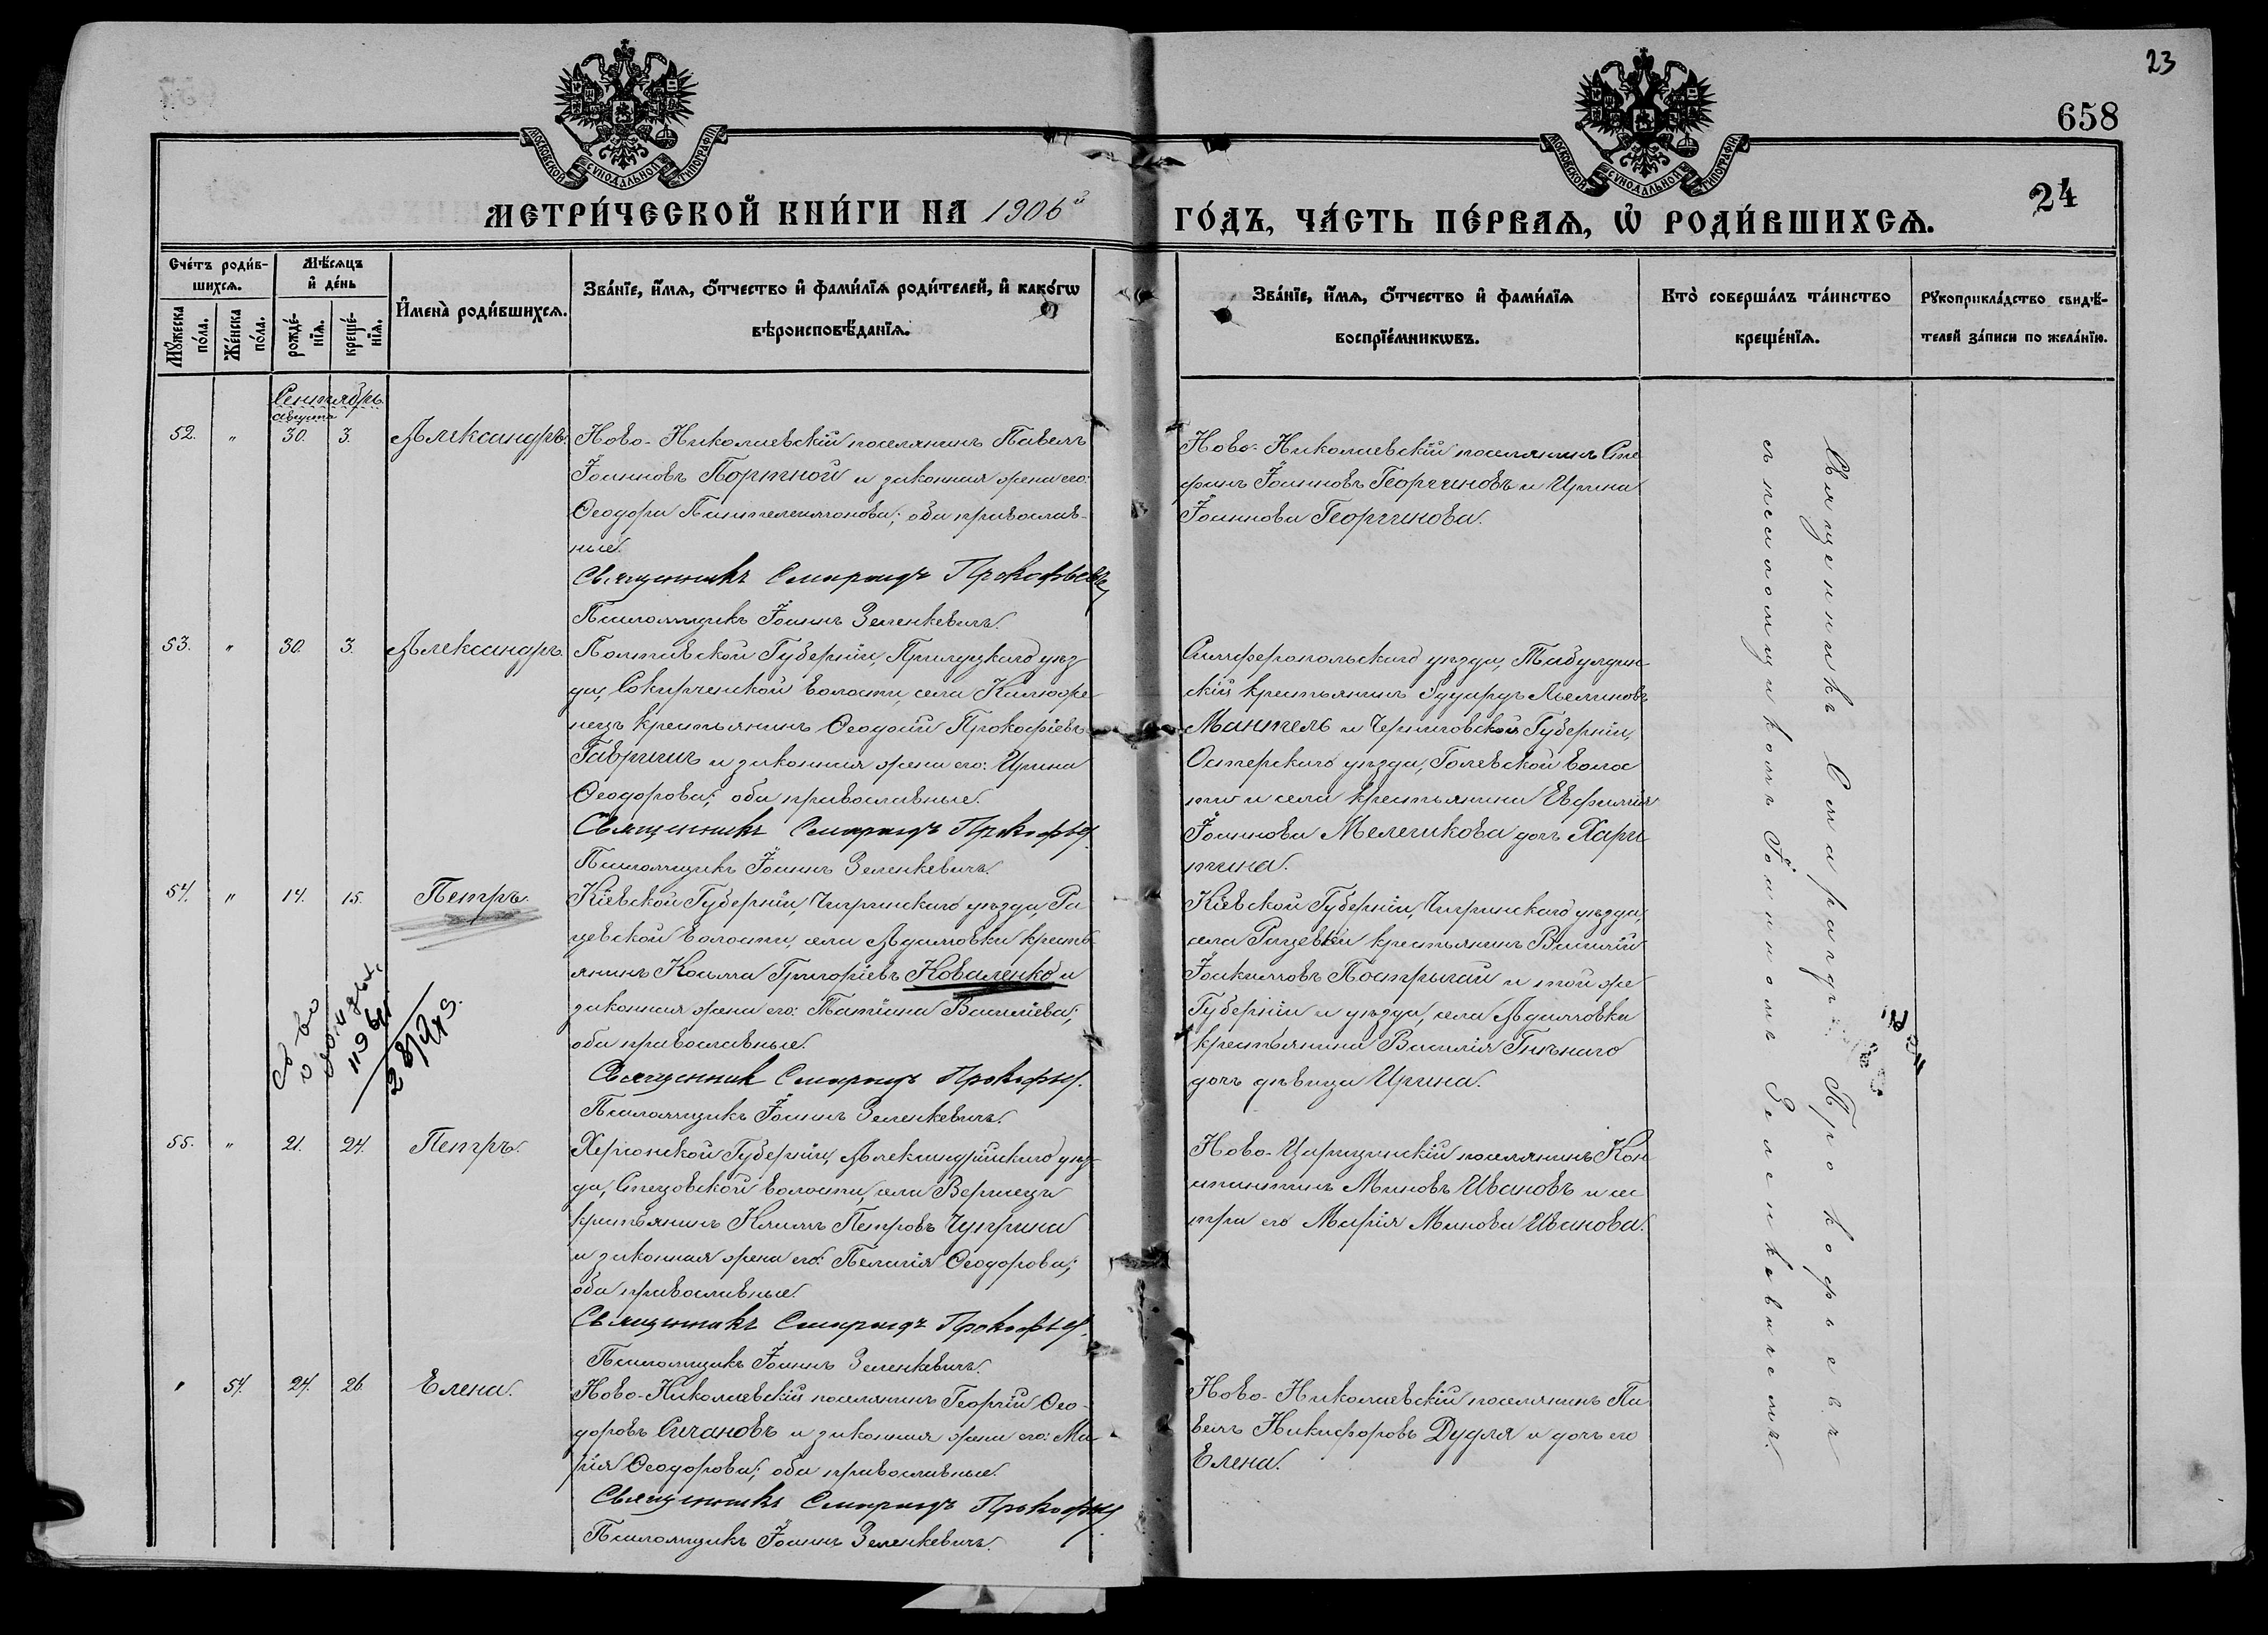 23
658
24
МОСКОВСКОЙ СѴНОДАЛЬНОЙ ТИПОГРАФІИ
МОСКОВСКОЙ СѴНОДАЛЬНОЙ ТИПОГРАФІИ
МЕТРИ́ЧЕСКОЙ КНИ́ГИ НА 1906й ГО́ДЪ, ЧА́СТЬ ПЕ́РВАѦ, Ѡ҆ РОДИ́ВШИХСѦ.
Сче́тъ роди́в-
шихсѧ.
Мꙋ́жеска по́ла.
Же́нска по́ла.
Мѣ́сѧцъ
и҆ де́нь
рожде́-
нїѧ.
креще́-
нїѧ.
И҆мена̀ роди́вшихсѧ.
Зва́нїе, и҆́мѧ, ѻ҆́тчество и҆ фами́лїѧ роди́телей, и҆ како́гѡ
вѣроисповѣ́данїѧ.
Зва́нїе, и҆́мѧ, ѻ҆́тчество и҆ фами́лїѧ
воспрїе́мникѡвъ.
Кто̀ соверша́лъ та́инство
креще́нїѧ.
Рꙋкоприкла́дство свидѣ́-
телей за́писи по жела́нїю.
Сентябрь
августа
52. " 30. 3. Александръ.
Ново-Николаевскій поселянинъ Павелъ
Іоанновъ Портной и законная жена его:
Ѳеодора Пантелеимонова; оба православ-
ные.
Священникъ Смарагдъ Прокофьевъ
Псаломщикъ Іоаннъ Зеленкевичъ.
Ново-Николаевскій поселянинъ Сте
фанъ Іоанновъ Георгиновъ и Ирина
Іоаннова Георгинова.
53. " 30. 3. Александръ.
Полтавской Губерніи, Прилуцкаго уѣз
да, Сокиренской волости, села Калюже
нецъ крестьянинъ Ѳеодоій Прокофіевъ
Гавришъ и законная жена его: Ирина
Ѳеодорова; оба православные.
Священникъ Смарагдъ Прокофьев.
Псаломщикъ Іоаннъ Зеленкевичъ.
Симферопольскаго уѣзда, Табулдин-
скій крестьянинъ Эдуардъ
Мантель и Черниговской Губерніи,
Остерскаго уѣзда, Голевской волос
ти и села крестьянина Евфимія
Іоаннова Мелешкова дочь Хари
тина.
54. " 14. 15. Петръ.
Кіевской Губерніи, Чигринскаго уѣзда, Ра
цевской волости, села Адамовки кресть
янинъ Косьма Григоріевъ Коваленко и
законная жена его: Татіана Василіева;
оба православные.
Священник Смарагдъ Прокофьев.
Псаломщикъ Іоаннъ Зеленкевичъ.
Кіевской Губерніи, Чигринскаго уѣзда,
села Рацевки крестьянинъ Василій
Іоакимовъ Постригай и той же
Губерніи и уѣзда, села Адамовки
крестьянина Василія Гнѣнаго
дочь дѣвица Ирина.
55. " 21. 24. Петръ.
Херсонской Губерніи, Александрійскаго уѣз-
да, Стецовской волости, села Вершецъ
крестьянинъ Климъ Петровъ Чуприна
и законная жена его: Пелагія Ѳеодорова;
оба православные.
Священникъ Смарагдъ Прокофьев.
Псаломщикъ Іоаннъ Зеленкевичъ.
Ново-Царицинскій поселянинъ Кон
стантинъ Миновъ Ивановъ и сес
тра его Марія Минова Иванова.
" 54. 24. 26. Елена.
Ново-Николаевскій поселянинъ Георгій Ѳео-
доровъ Сичановъ и законная жена его: Ма-
рія Ѳеодорова; оба православные.
Священникъ Смарагдъ Прокофьев.
Псаломщикъ Іоаннъ Зеленкевичъ.
Ново-Николаевскій поселянинъ Па
велъ Никифоровъ Дудля и дочь его
Елена.
Священникъ Смарагдъ Прокофьевъ
съ псаломщикомъ Іоанномъ Зеленкевичемъ.